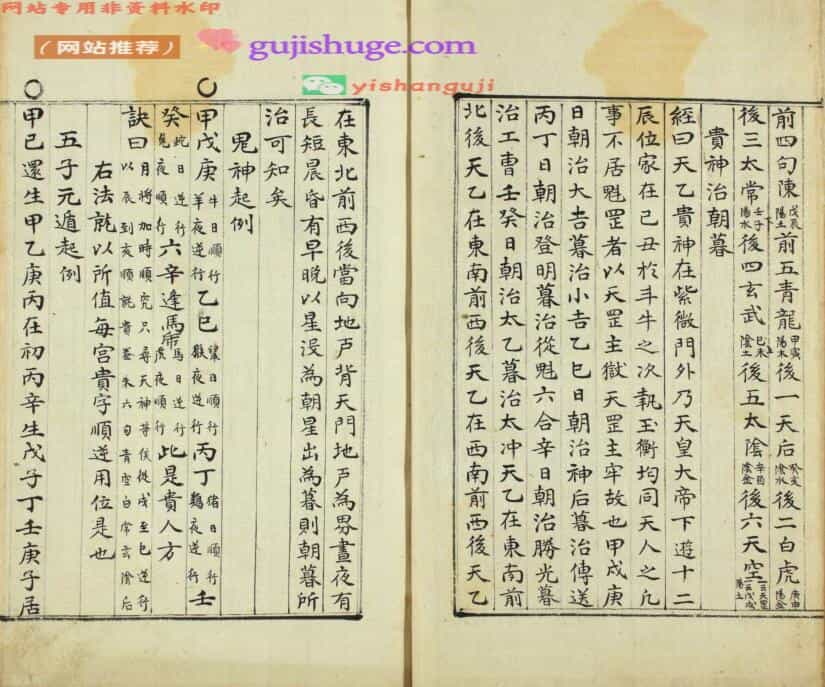 网站专用非资料水印
(网站推荐)
gujishuge.com
yishanguji
前四句陳戊辰陽土前五青龍甲寅陽木後一天后癸亥陰水後二白虎庚申陽金
後三太常後四玄武後五太陰辛酉陰金後六天空
貴神治朝暮
經曰天乙貴神在紫微門外乃天皇大帝下遊十二
辰位家在己丑於斗牛之次執玉衡均同天人之凢
事不居魁罡者以天罡主獄天罡主牢故也甲戊庚
日朝治大吉暮治小吉乙巳日朝治神后暮治傳送
丙丁日朝治登明暮治從魁六合辛日朝治勝光暮
治工曹壬癸日朝治太乙暮治太冲天乙在東南前
北後天乙在東南前西後天乙在西南前西後天乙
在東北前西後當向地戶背天門地戶為界晝夜有
長短晨昏有早晚以星没為朝星出為暮則朝暮所
治可知矣
鬼神起例
甲戊庚牛日順行羊夜逆行乙巳鼠日順行猴夜逆行丙丁猪日順行鷄夜逆行壬
癸蛇日逆行兎夜順行六辛逢馬帍馬日逆行虎夜順行此是貴人方
訣曰月將加時順究只尋天神等侯從戌至巳逆行以辰到亥順就貴荅朱六勾青空白常玄陰后
右法就以所值每宫貴字順逆用位是也
五子元遁起例
甲己還生甲乙庚丙在初丙辛生戊子丁壬庚子居